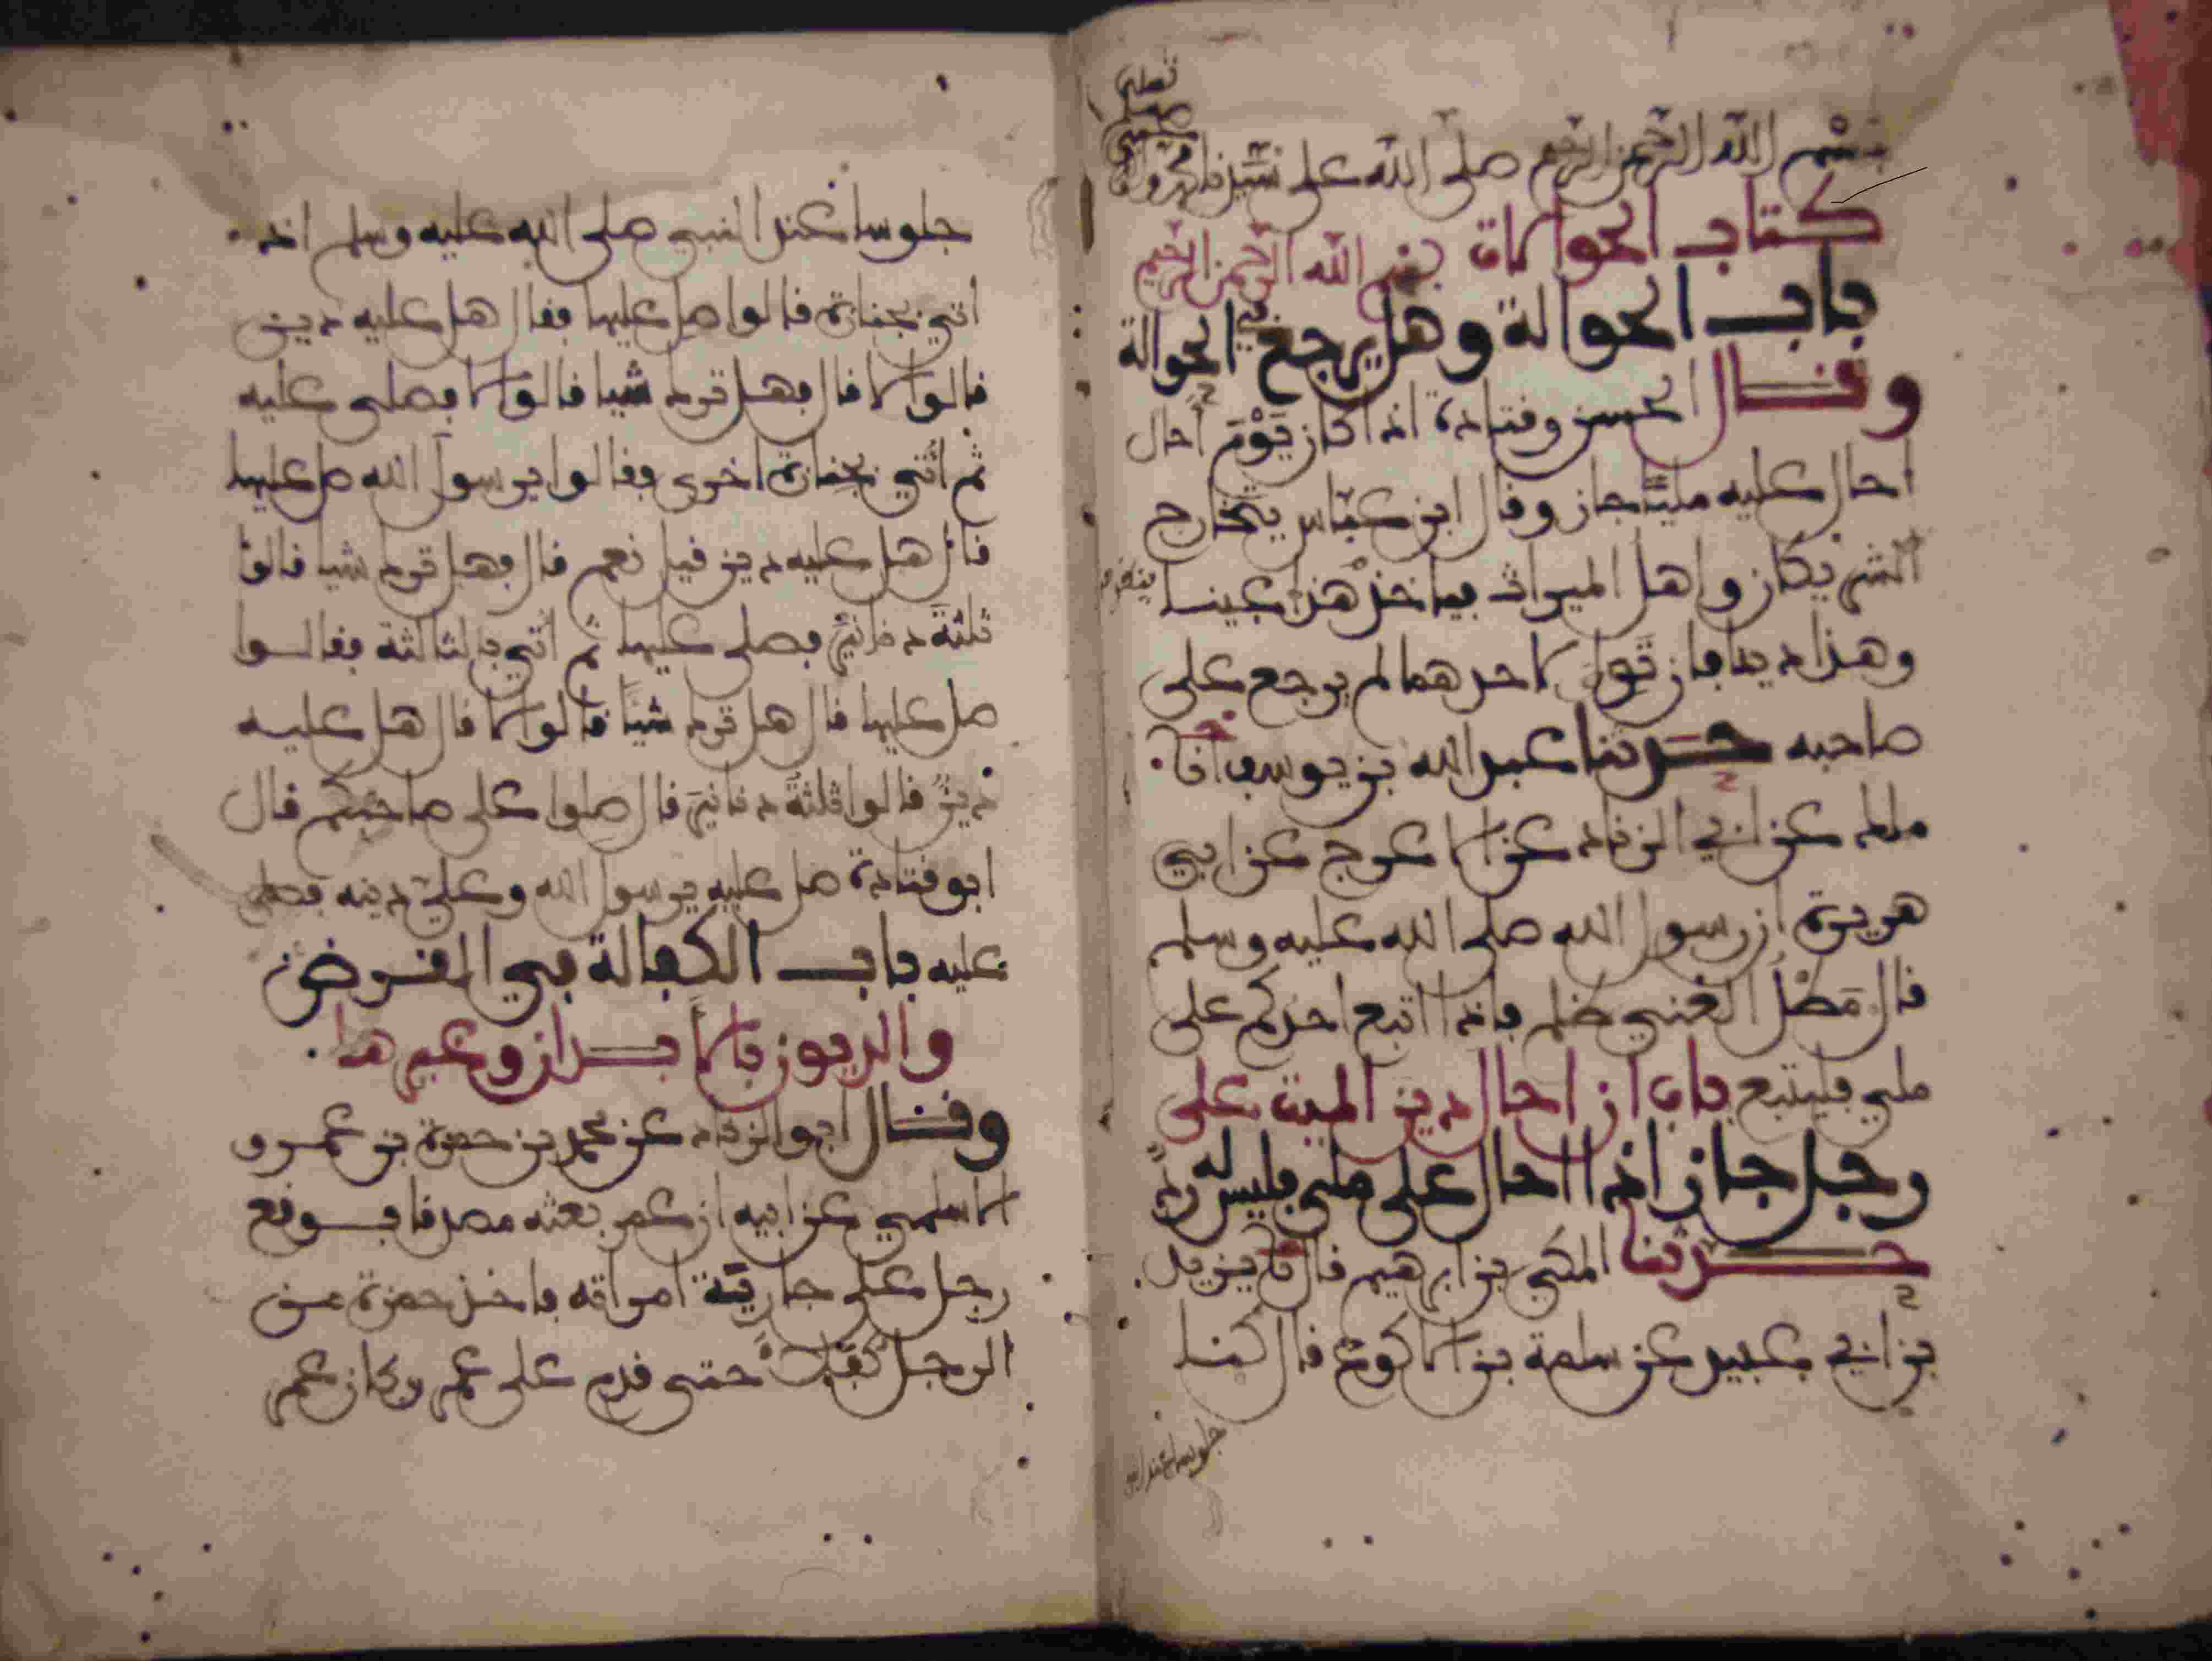 بسم الله الرحمن الرحيم صلى الله على سيدنا محمد وآله
كتاب الحوالات بسم الله الرحمن الرحيم
باب الحوالة وهل يرجع في الحوالة
وقال الحسن وقتادة اذا كان يَوْمَ أحال
احال عليه مليًّا جاز وقال ابن عباس يتخارج
الشريكان واهل الميراث فياخذ هذا عينا
وهذا دينا فان تَوِيَ لاحدهما لم يرجع على
صاحبه حدثنا عبد الله بن يوسف انا
ملك عن ابي الزناد عن الاعرج عن ابي
هريرة ان رسول الله صلى الله عليه وسلم
قال مَطْلُ الغني ظلم فاذا اتبع احدكم على
ملي فليتبع باب ان احال دين الميت على
رجل جاز اذا احال على ملي فليس له ردّ
حدثنا المكي بن ابرهيم قال نا يزيد
بن ابي عبيد عن سلمة بن الاكوع قال كنا
جلوسا عند النبي
جلوسا عند النبي صلى الله عليه وسلم اذ
اتي بجنازة قالوا صل عليها فقال هل عليه دين
قالوا لا قال فهل ترك شيا قالوا لا فصلى عليه
ثم اتي بجنازة اخرى فقالوا يرسول الله صل عليها
قال هل عليه دين قيل نعم قال فهل ترك شيا قالوا
ثلثة دنانير فصلى عليها ثم اتي بالثالثة فقالوا
صل عليها قال هل ترك شيًا قالوا لا قال هل عليه
دين قالوا ثلثة دنانير قال صلوا على صاحبكم قال
ابو قتادة صل عليه يرسول الله وعليّ دينه فصلى
عليه باب الكفالة في القرض
والديون بالابدان وغيرها
وقال ابو الزناد عن محمد بن حمزة بن عمرو
الاسلمي عن ابيه ان عمر بعثه مصدقا فوقع
رجل على جارية امراته فاخذ حمزة من
الرجل كفيلا حتى قدم على عمر وكان عمر